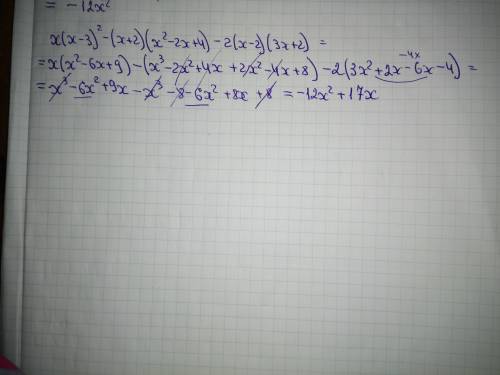 = -12x²
x(x-3)² - (x+2)(x²-2x+4) - 2(x-2)(3x+2) =
-4x
= x(x²-6x+9) - (x³-2x²+4x+2x²-4x+8) - 2(3x²+2x-6x-4) =
= x³-6x²+9x-x³-8-6x²+8x+8 = -12x²+17x